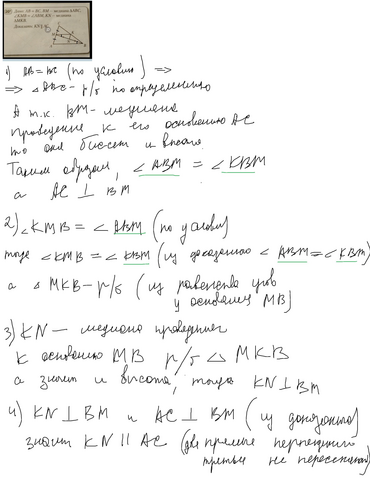 Дано: AB = BC, BM – медиана △ABC,
∠KMB = ∠ABM, KN – медиана
△MKB.
Доказать: KN ∥ AC
1) AB = BC (по условию) ⇒
⇒ △ABC – р/б по определению
А т.к. BM – медиана
проведение к его основанию AC
то она биссект и высота.
Таким образом, ∠ABM = ∠KBM
а AC ⊥ BM
2) ∠KMB = ∠ABM (по условию)
тогда ∠KMB = ∠KBM (из доказанно ∠ABM = ∠KBM)
а △MKB – р/б (из равенства углов
у основания MB)
3) KN – медиана проведения
к основанию MB р/б △MKB
а значит и высота, тогда KN ⊥ BM
4) KN ⊥ BM и AC ⊥ BM (из доказанно)
значит KN ∥ AC (две прямые перпендик
третьей не пересекаются)